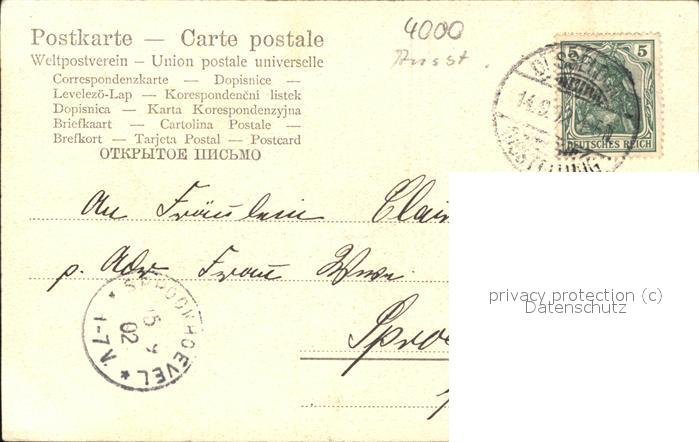 4000
Ausst.
Postkarte — Carte postale
Weltpostverein — Union postale universelle
Correspondenzkarte — Dopisnice —
Levelező-Lap — Korespondenční listek
Dopisnica — Karta Korespondenzyjna
Briefkaart — Cartolina Postale —
Brefkort — Tarjeta Postal — Postcard
ОТКРЫТОЕ ПИСЬМО
5 5
DEUTSCHES REICH
DÜSSELDORF
14.9.02
AUSSTELLUNG
An Fräulein
p. Adr Frau Wwe.
SPROCKHOEVEL
15 9
02
1-7 N
privacy protection (c)
Datenschutz